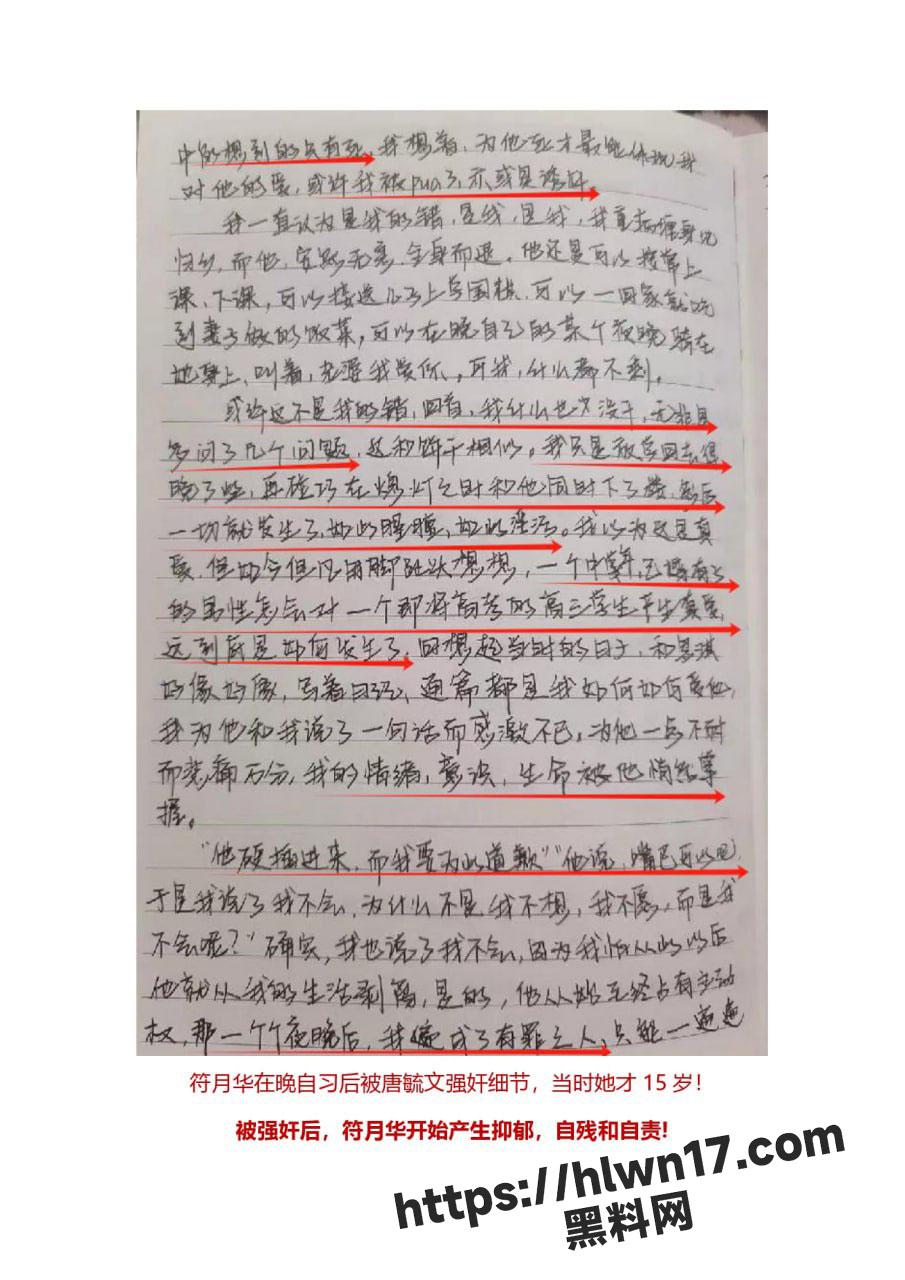 中能想到的只有死，我想着，为他死才最能体现我
对他的爱，或许我被pua了，亦或是诱奸。
我一直认为是我的错，是我，是我，我
归乡，而他，安然无恙，全身而退。他还是可以按常上
课、下课，可以接送儿子上学围棋，可以一回家就吃
到妻子做的饭菜，可以在晚自习的某个夜晚骑在
她身上，叫着，老婆我爱你，可我，什么都不剩。
或许这不是我的错，回首，我什么也没干，无非是
多问了几个问题，这和饼干相似。我只是放学回去得
晚了些，再碰巧在熄灯之时和他同时下了楼，然后
一切就发生了，如此腥膻，如此淫污。我以为这是真
爱，但如今但凡用脚趾头想想，一个中年，已婚有子
的男性怎会对一个即将高考的高三学生产生真爱，
这到底是如何发生了，回想起当时的日子，和思琪
好像好像，写着日记，通篇都是我如何如何爱他，
我为他和我说了一句话而感激不已，为他一点不耐
而悲痛万分，我的情绪，意识，生命被他悄然掌
握。
“他硬插进来，而我要为此道歉”“他说，嘴巴可以吧，
于是我说了我不会，为什么不是我不想，我不愿，而是我
不会呢？”确实，我也说了我不会，因为我怕从此以后
他就从我的生活剥离，是的，他从始至终占有主动
权，那一个个夜晚后，我便成了有罪之人，只能一遍遍
符月华在晚自习后被唐毓文强奸细节，当时她才 15 岁！
被强奸后，符月华开始产生抑郁，自残和自责!
https://hlwn17.com/
黑料网